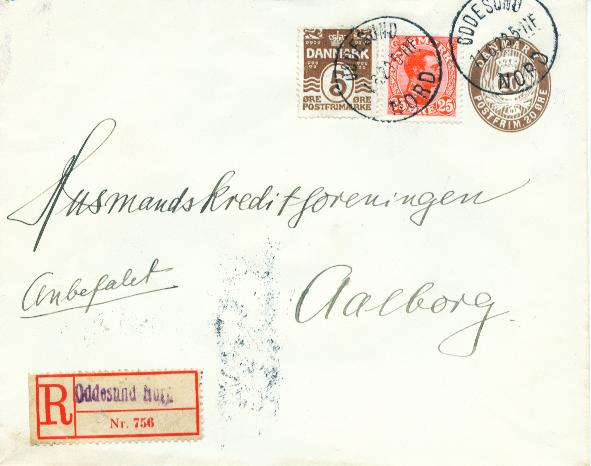 DANMARK
5
ØRE ØRE
POSTFRIMÆRKE
DANMARK
25
ODDESUND
NORD
ODDESUND
NORD
DANMARK
POSTFRIM. 20 ØRE
Husmandskreditforeningen
Anbefalet
Aalborg.
R
Oddesund Nord
Nr. 756